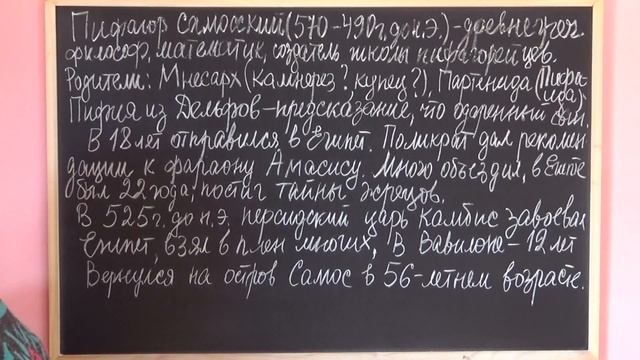 Пифагор Самосский (570-490г. до н.э.) - древнегреч.
философ, математик, создатель школы пифагорейцев.
Родители: Мнесарх (камнерез?, купец?), Партенида (Пифа-
ида)
Пифия из Дельфов - предсказание, что одаренный сын.
В 18 лет отправился в Египет. Поликрат дал рекомен
дации к фараону Амасису. Много объездил, в Египте
был 22 года, постиг тайны жрецов.
В 525г. до н.э. персидский царь Камбис завоевал
Египет, взял в плен многих, В Вавилоне - 12 лет
Вернулся на остров Самос в 56-летнем возрасте.